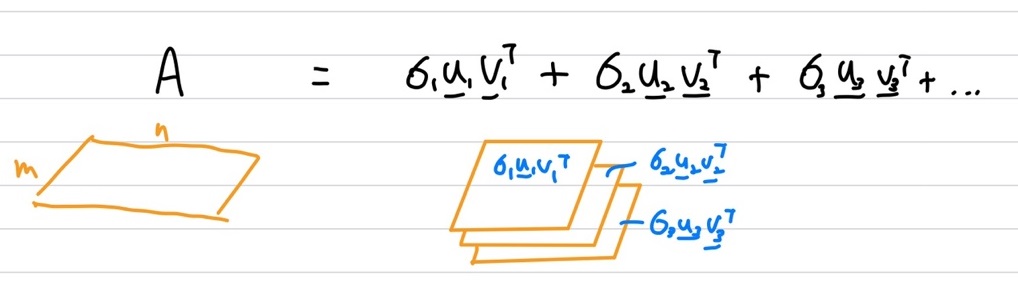 A = σ₁u₁v₁ᵀ + σ₂u₂v₂ᵀ + σ₃u₃v₃ᵀ + ...
n
m
σ₁u₁v₁ᵀ
σ₂u₂v₂ᵀ
σ₃u₃v₃ᵀ